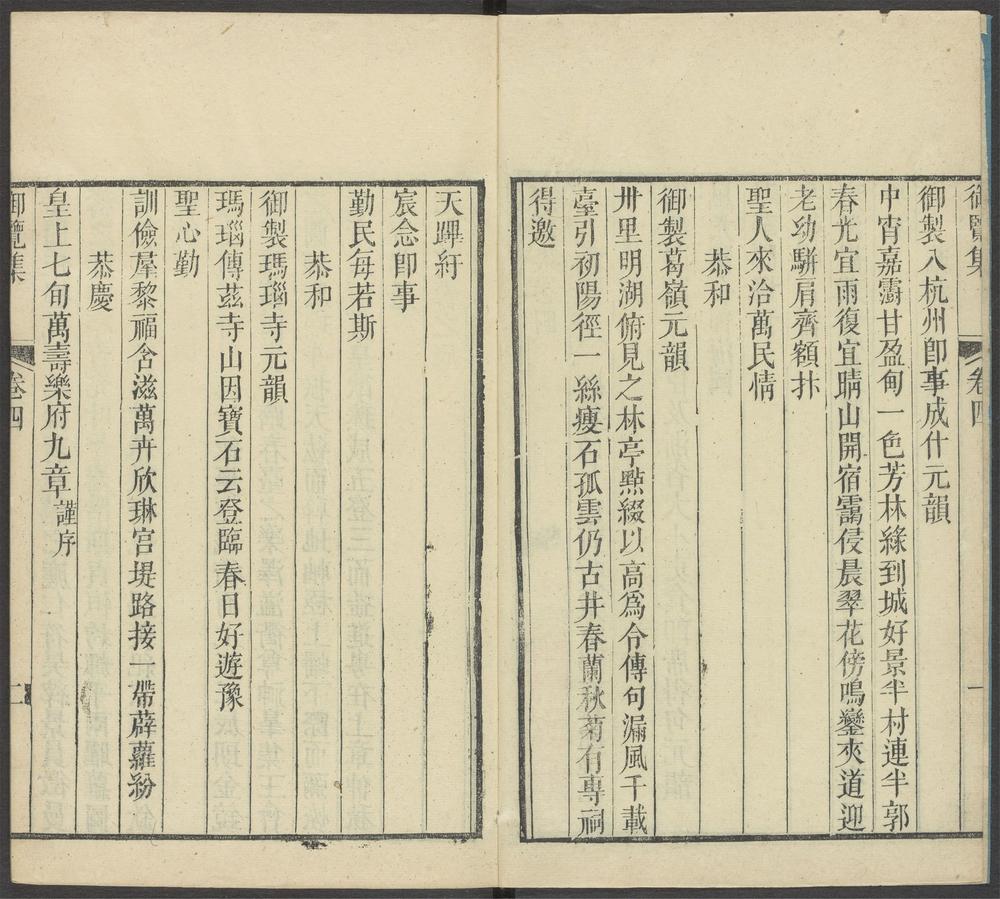 御覽集 卷四 一
御製入杭州即事成什元韻
中宵嘉霔甘盈甸一色芳林綠到城好景半村連半郭
春光宜雨復宜晴山開宿靄侵晨翠花傍鳴鑾夾道迎
老幼駢肩齊額抃
聖人來洽萬民情
恭和
御製葛嶺元韻
卅里明湖俯見之林亭㸃綴以高爲合傳句漏風千載
臺引初陽徑一絲瘦石孤雲仍古井春蘭秋菊有專祠
得邀
天蹕紆
宸念即事
勤民每若斯
恭和
御製瑪瑙寺元韻
瑪瑙傳茲寺山因寶石云登臨春日好遊豫
聖心勤
訓儉羣黎福含滋萬卉欣琳宮堤路接一帶薜蘿紛
恭慶
皇上七旬萬壽樂府九章謹序
御覽集 卷四 二